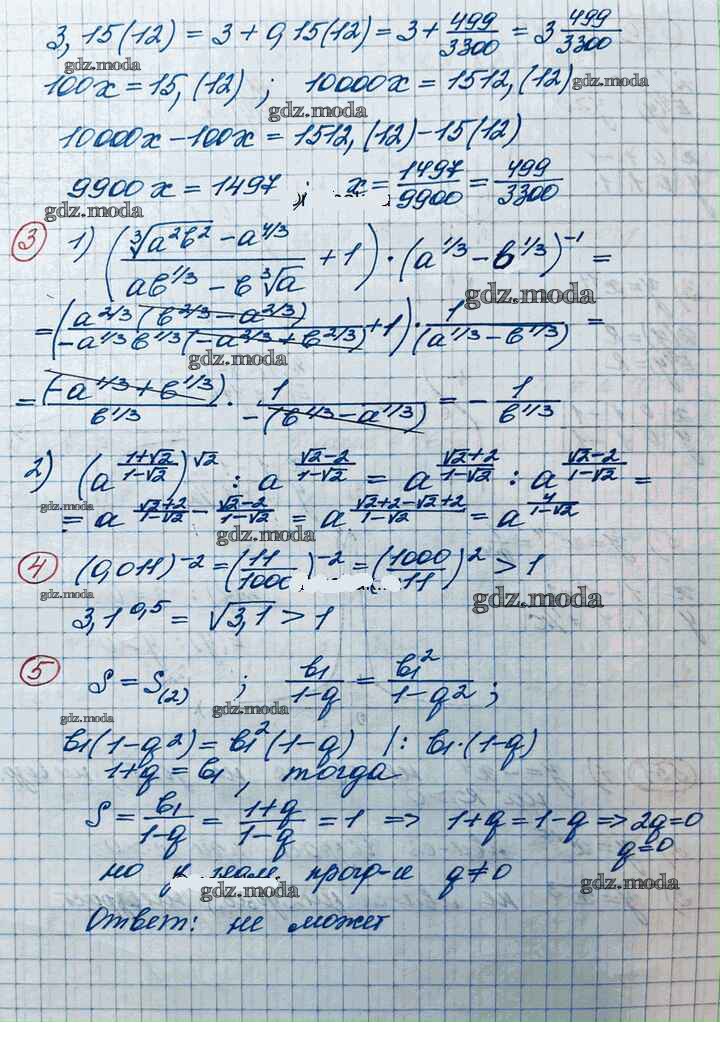 3,15(12) = 3 + 0,15(12) = 3 + 499/3300 = 3 499/3300
gdz.moda
100x = 15,(12) ; 10000x = 1512,(12)
gdz.moda
gdz.moda
10000x - 100x = 1512,(12) - 15(12)
9900x = 1497 ; x = 1497/9900 = 499/3300
gdz.moda
gdz.moda
③ 1) ((∛(a²b²) - a^(4/3))/(ab^(1/3) - b∛a) + 1) · (a^(1/3) - b^(1/3))^(-1) =
gdz.moda
= (a^(2/3)(b^(2/3) - a^(2/3))/(-a^(1/3)b^(1/3)(-a^(2/3) + b^(2/3))) + 1) · 1/(a^(1/3) - b^(1/3)) =
gdz.moda
= (-a^(1/3) + b^(1/3))/b^(1/3) · 1/(-(b^(1/3) - a^(1/3))) = - 1/b^(1/3)
2) (a^((1+√2)/(1-√2)))^√2 : a^((√2-2)/(1-√2)) = a^((√2+2)/(1-√2)) : a^((√2-2)/(1-√2)) =
gdz.moda
= a^((√2+2)/(1-√2) - (√2-2)/(1-√2)) = a^((√2+2-√2+2)/(1-√2)) = a^(4/(1-√2))
gdz.moda
④ (0,011)^(-2) = (11/1000)^(-2) = (1000/11)² > 1
gdz.moda
gdz.moda
3,1^0,5 = √3,1 > 1
⑤ S = S₍₂₎ ; b₁/(1-q) = b₁²/(1-q²) ;
gdz.moda
gdz.moda
b₁(1-q²) = b₁²(1-q) |: b₁·(1-q)
1+q = b₁, тогда
S = b₁/(1-q) = (1+q)/(1-q) = 1 => 1+q = 1-q => 2q=0
q=0
но прогр-и q≠0
gdz.moda
gdz.moda
Ответ: не может
gdz.moda